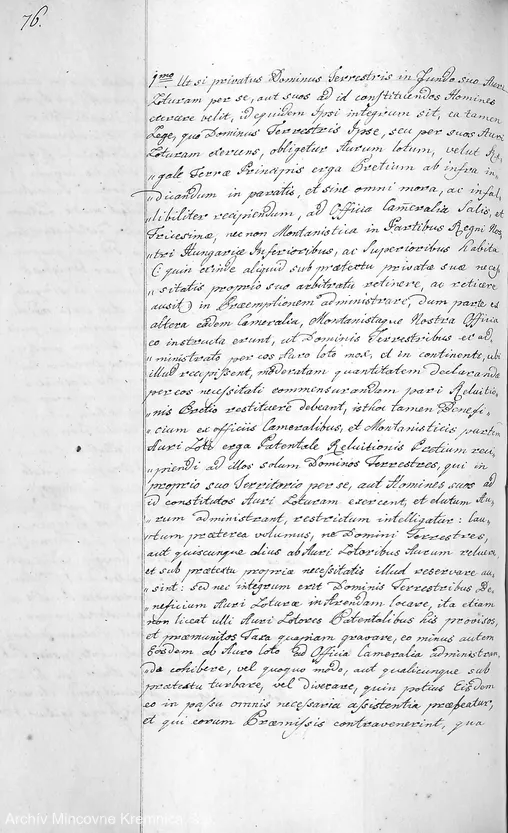 76.
1mo Ut si privatus Dominus Terrestris in fundo suo Auri
Loturam per se, aut suos ad id constituendos Homines
exercere velit, id equidem Ipsi integrum sit, ea tamen
Lege, quo Dominus Terrestris Ipse, seu per suos Auri
Loturam exercens, obligetur Aurum lotum, velut Re„
„gale Terræ Principis erga Pretium ab infra in„
„dicandum in paratis, et sine omni mora, ac infal„
„libiliter recipiendum, ad Officia Cameralia Salis, et
Tricesimæ, nec non Montanistica in Partibus Regni Nos„
„tri Hungariæ Inferioribus, ac Superioribus habita
(: quin exinde aliquid sub prætextu privatæ suæ neces„
„sitatis proprio suo arbitratu retinere, ac reticere
ausit :) in Præemptionem administrare, dum parte ex
altera eadem Cameralia, Montanistaque Nostra Officia
eo instructa erunt, ut Dominis Terrestribus ex ad„
„ministrato per eos Auro loto mox, et in continenti, ubi
illud recepissent, moderatam quantitatem declarandæ
per eos necessitati commensurandam pari Reluitio„
„nis Pretio restituere debeant, isthoc tamen Benefi„
„cium ex officiis Cameralibus, et Montanisticis partem
Auri Loti erga Patentale Reluitionis Pretium reci„
„piendi ad illos solum Dominos Terrestres, qui in
proprio suo Territorio per se, aut Homines suos ad
id constitutos Auri Loturam exercent, et elutum Au„
„rum administrant, restrictum intelligatur: cau„
„tum præterea volumus, ne Domini Terrestres,
aut quicunque alius ab Auri Lotoribus Aurum reluere,
et sub prætextu propriæ necessitatis illud reservare au„
„sint: sed nec integrum erit Dominis Terrestribus Be„
„neficium Auri Loturæ in Arendam locare, ita etiam
non liceat ulli Auri Lotores Patentalibus his provisos,
et præmunitos Taxa quapiam gravare, eo minus autem
Eosdem ab Auro loto ad Officia Cameralia administran„
do cohibere, vel quoquo modo, aut qualicunque sub
prætextu turbare, vel divexare, quin potius Eisdem
eo in passu omnis necessaria assistentia præbeatur,
et qui eorum Præmissis contravenerint, qua
Archív Mincovne Kremnica